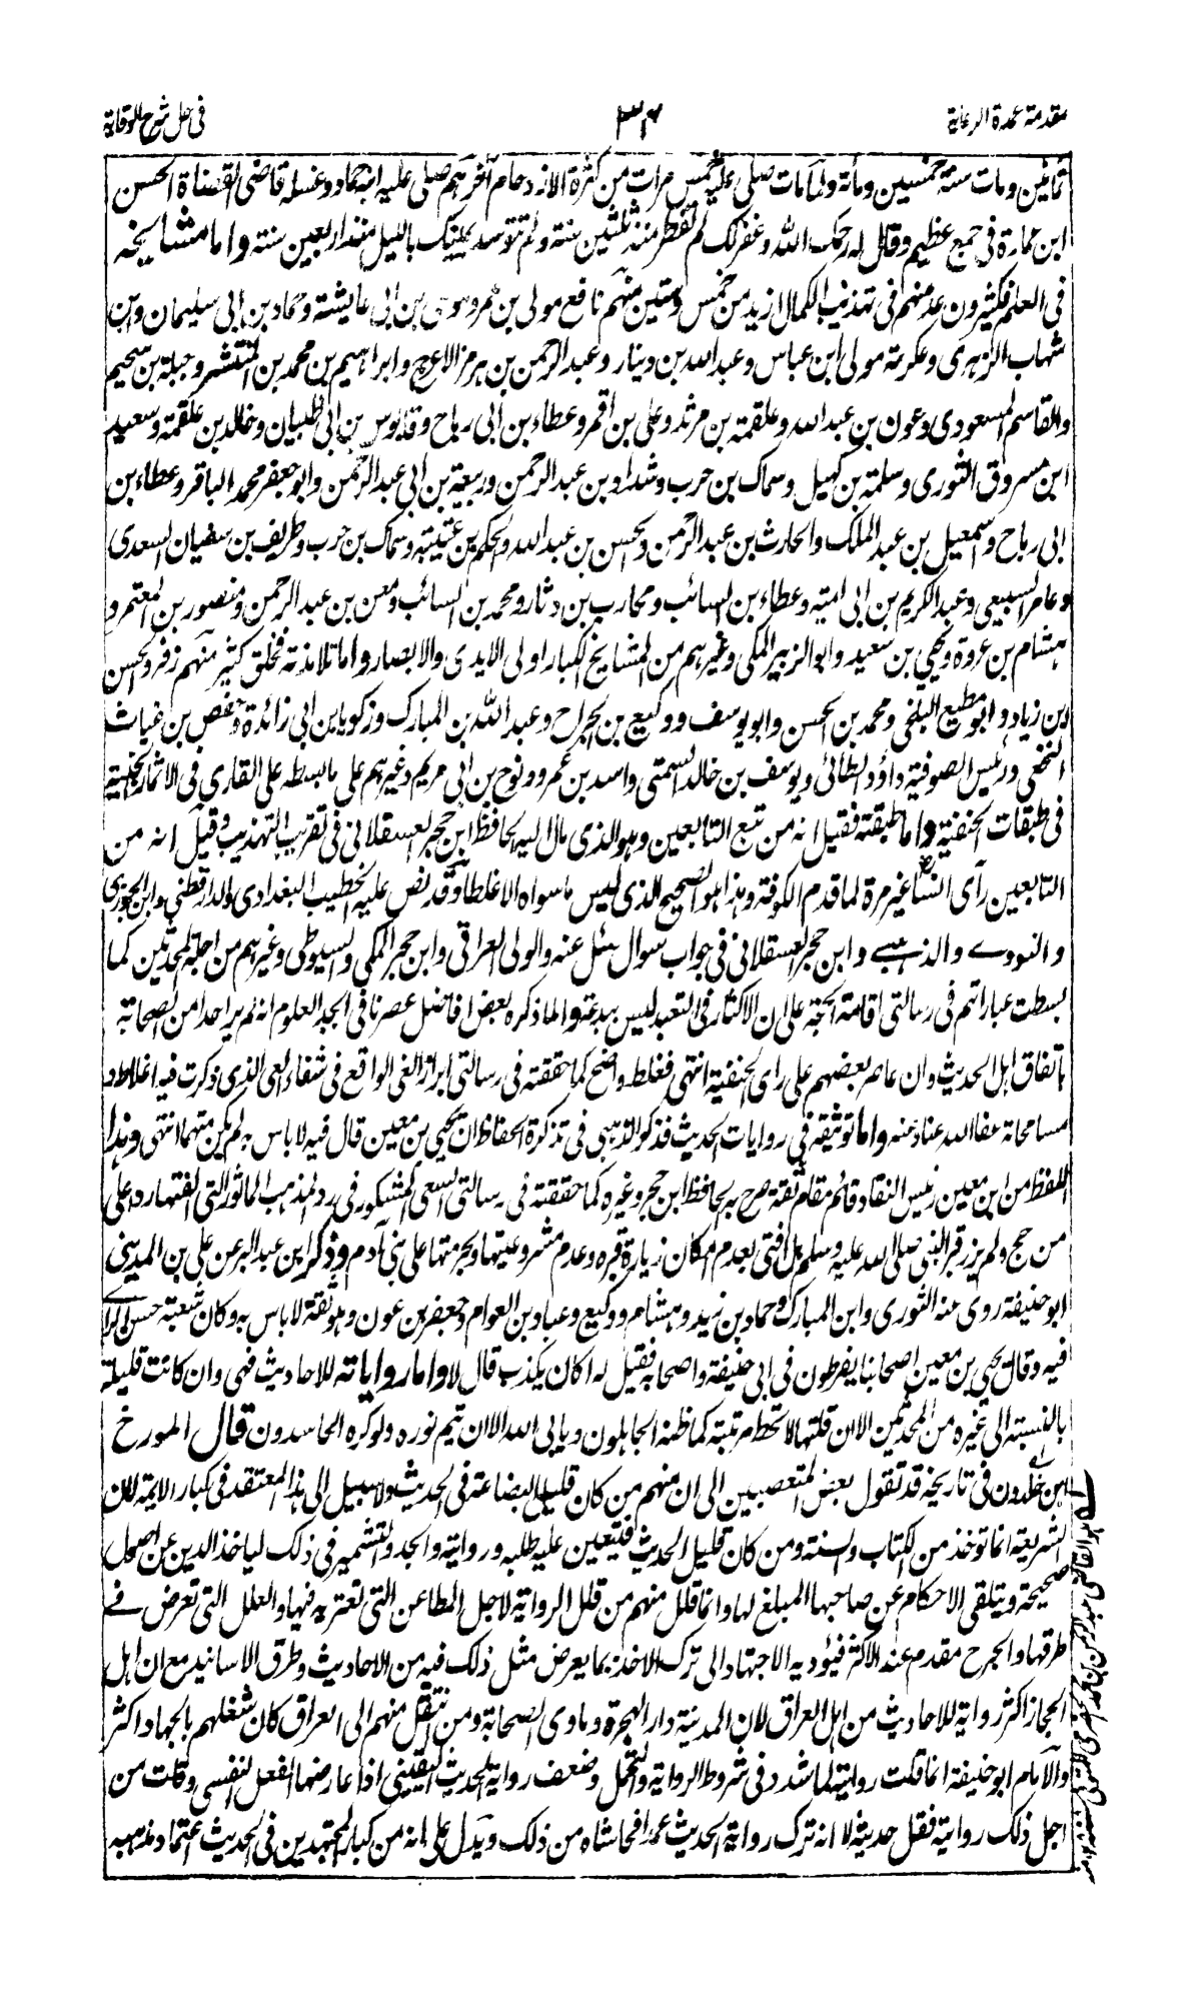 مقدمة عمدة الرعاية
٣٤
في حل شرح الوقاية
ثمانين ومات سنة خمسين ومائة ولما مات صلى عليه خمس مرات من كثرة الازدحام آخرهم صلى عليه ابنه حماد وغسله قاضى القضاة الحسن
ابن عمارة فى جمع عظيم وقال له رحمك الله وغفر لك لم تفطر منذ ثلثين سنة ولم تتوسد يمينك بالليل منذ اربعين سنة واما مشايخه
فى العلم فكثيرون عد منهم فى تهذيب الكمال ازيد من خمس وستين منهم نافع مولى بن عمر وموسى بن ابى عايشة وحماد بن ابى سليمان وابن
شهاب الزهرى وعكرمة مولى ابن عباس وعبد الله بن دينار وعبد الرحمن بن هرمز الاعرج وابراهيم بن محمد بن المنتشر وجبلة بن سحيم
والقاسم المسعودى وعون بن عبد الله وعلقمة بن مرثد وعلى بن اقمر وعطاء بن ابى رباح وقابوس بن ابى ظبيان وخالد بن علقمة وسعيد
ابن مسروق الثورى وسلمة بن كهيل وسماك بن حرب وشداد بن عبد الرحمن وربيعة بن ابى عبد الرحمن وابو جعفر محمد الباقر وعطاء بن
ابى رباح واسمعيل بن عبد الملك والحارث بن عبد الرحمن والحسن بن عبد الله والحكم بن عتيبة وسماك بن حرب وطريف بن سفيان السعدى
وعامر السبيعى وعبد الكريم بن ابى امية وعطاء بن السائب ومحارب بن دثار ومحمد بن السائب ومعن بن عبد الرحمن ومنصور بن المعتمر و
هشام بن عروة ويحيى بن سعيد وابو الزبير المكى وغيرهم من المشايخ الكبار اولى الايدى والابصار واما تلامذته فخلق كثير منهم زفر والحسن
ابن زياد وابو مطيع البلخى ومحمد بن الحسن وابو يوسف ووكيع بن الجراح وعبد الله بن المبارك وزكريا بن ابى زائدة وحفص بن غياث
النخعى ورئيس الصوفية داؤد الطائى ويوسف بن خالد السمتى واسد بن عمرو ونوح بن ابى مريم وغيرهم على ما بسطه على القارى فى الاثمار الجنية
فى طبقات الحنفية واما طبقته فقيل انه من تبع التابعين وهو الذى مال اليه الحافظ ابن حجر العسقلانى فى تقريب التهذيب وقيل انه من
التابعين رأى انسا غير مرة لما قدم الكوفة وهذا هو الصحيح الذى ليس ما سواه الا غلطا وقد نص عليه الخطيب البغدادى والدارقطنى وابن الجوزى
والنووى والذهبى وابن حجر العسقلانى فى جواب سوال سئل عنه والولى العراقى وابن حجر المكى والسيوطى وغيرهم من اجلة المحدثين كما
بسطت عباراتهم فى رسالتى اقامة الحجة على ان الاكثار فى التعبد ليس ببدعة واما ما ذكره بعض افاضل عصرنا فى ابجد العلوم انه لم ير احدا من الصحابة
باتفاق اهل الحديث وان عاصر بعضهم على راى الحنفية انتهى فغلط واضح كما حققته فى رسالتى ابراز الغى الواقع فى شفاء العى الذى ذكرت فيه اغلاطه و
مسامحاته عفا الله عنا وعنه واما توثيقه فى روايات الحديث فذكر الذهبى فى تذكرة الحفاظ ان يحيى بن معين قال فيه لاباس به لم يكن متهما انتهى وهذا
اللفظ من ابن معين رئيس النقاد قائم مقام ثقة صرح به الحافظ ابن حجر وغيره كما حققته فى رسالتى السعى المشكور فى رد المذهب الماثور التى الفتها ردا على
من حج ولم يزر قبر النبى صلى الله عليه وسلم بل افتى بعدم امكان زيارة قبره وعدم مشروعيتها وبحرمتها على بنى آدم وذكر ابن عبد البر عن على بن المدينى
ابو حنيفة روى عنه الثورى وابن المبارك وحماد بن زيد وهشام ووكيع وعباد بن العوام وجعفر بن عون وهو ثقة لاباس به وكان شعبة حسن الراى
فيه وقال يحيى بن معين اصحابنا يفرطون فى ابى حنيفة واصحابه فقيل له اكان يكذب قال لا واما رواياته للاحاديث فهى وان كانت قليلة
بالنسبة الى غيره من المحدثين الا ان قلتها لا تحط مرتبته كما ظنه الجاهلون ويابى الله الا ان يتم نوره ولو كره الحاسدون قال المورخ
ابن خلدون فى تاريخه قد تقول بعض المتعصبين الى ان منهم من كان قليل البضاعة فى الحديث ولا سبيل الى هذا المعتقد فى كبار الايمة لان
الشريعة انما توخذ من الكتاب والسنة ومن كان قليل الحديث فيتعين عليه طلبه وروايته والجد والتشمير فى ذلك لياخذ الدين عن اصول
صحيحة ويتلقى الاحكام عن صاحبها المبلغ لها وانما قلل منهم من قلل الرواية لاجل المطاعن التى تعتريه فيها والعلل التى تعرض فى
طرقها والجرح مقدم عند الاكثر فيؤديه الاجتهاد الى ترك الاخذ بما يعرض مثل ذلك فيه من الاحاديث وطرق الاسانيد مع ان اهل
الحجاز اكثر رواية للاحاديث من اهل العراق لان المدينة دار الهجرة وماوى الصحابة ومن انتقل منهم الى العراق كان شغلهم بالجهاد اكثر
والامام ابو حنيفة انما قلت روايته لما شدد فى شروط الرواية والتحمل وضعف رواية الحديث اليقينى اذا عارضها الفعل النفسى وقلت من
اجل ذلك روايته فقل حديثه لا انه ترك رواية الحديث عمدا فحاشاه من ذلك ويدل على انه من كبار المجتهدين فى الحديث اعتماد مذهبه